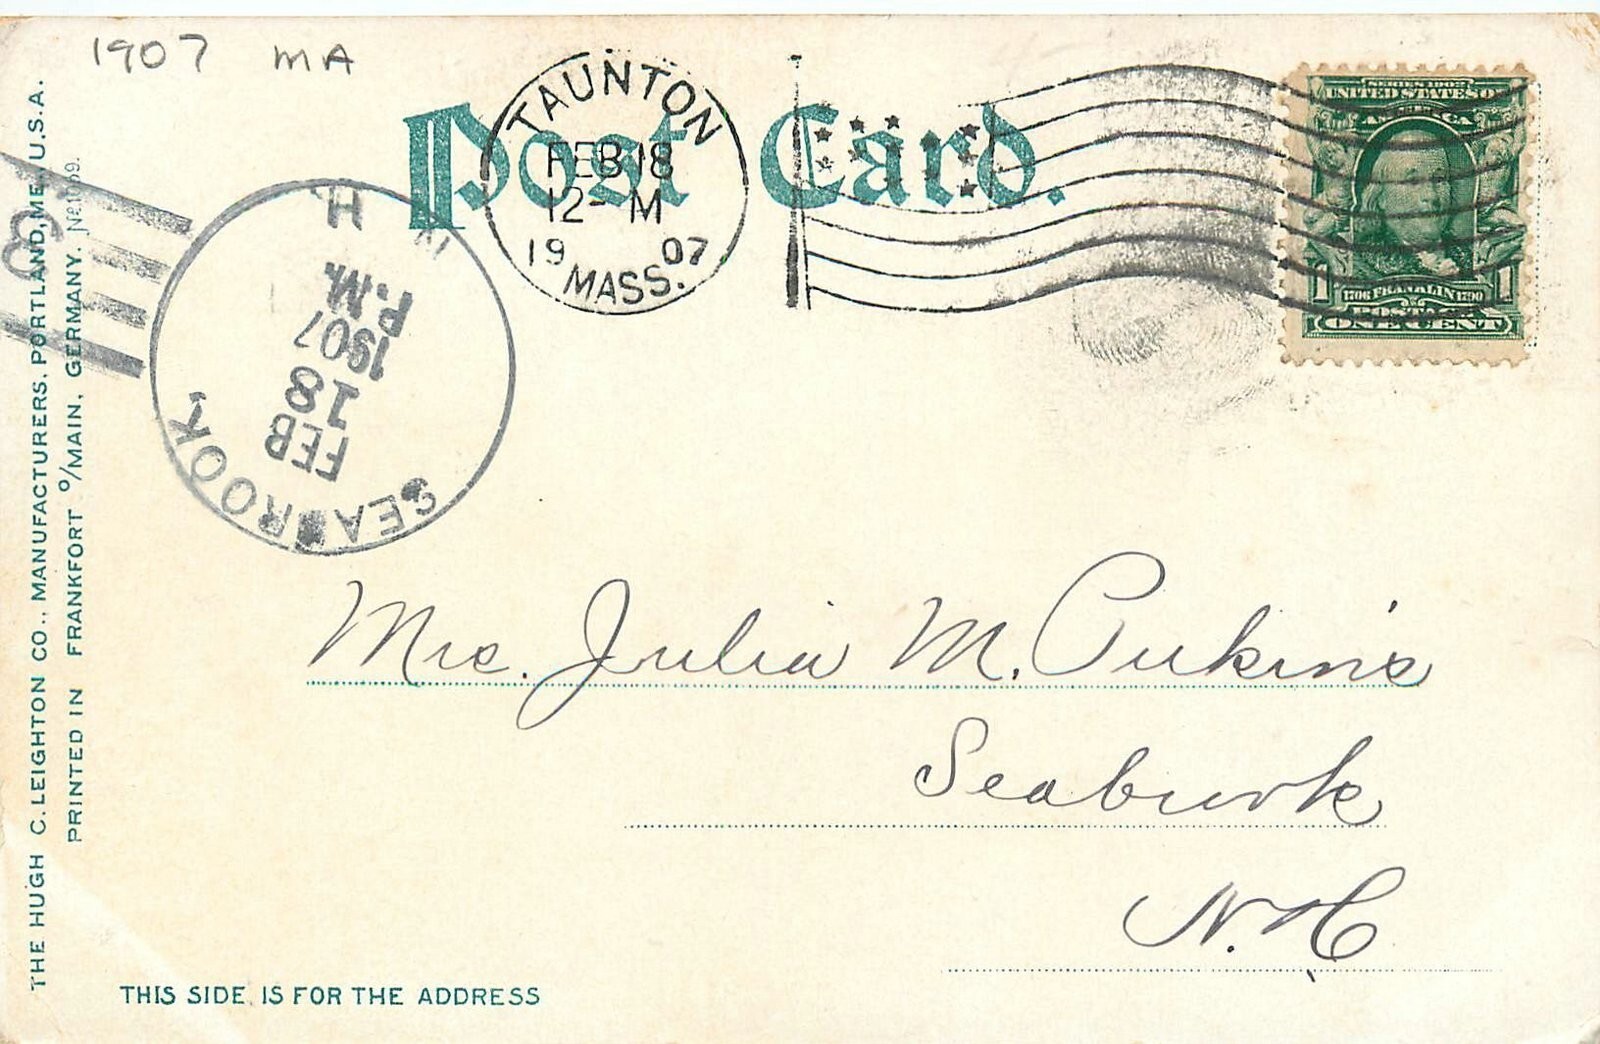 1907 MA
Post Card.
TAUNTON
FEB 18
12-M
1907
MASS.
SERIES 1902
UNITED STATES OF
AMERICA
1 1
1706 FRANKLIN 1790
POSTAGE
ONE CENT
SEABROOK,
N H
FEB
18
1907
P.M.
Mrs. Julia M.
Seabrook
N.H
THE HUGH C. LEIGHTON CO., MANUFACTURERS, PORTLAND, ME., U.S.A.
PRINTED IN FRANKFORT O/MAIN, GERMANY.
THIS SIDE IS FOR THE ADDRESS